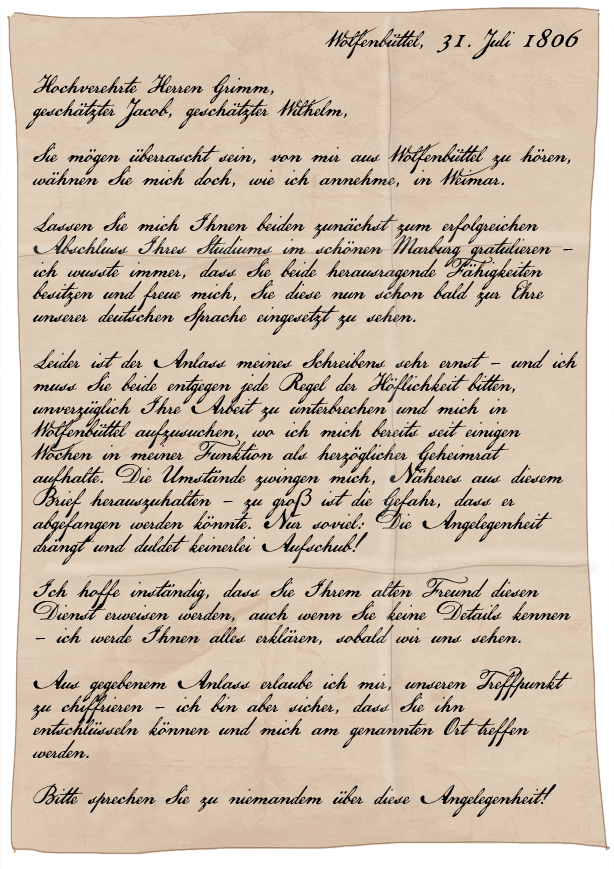 Wolfenbüttel, 31. Juli 1806
Hochverehrte Herren Grimm,
geschätzter Jacob, geschätzter Wilhelm,
Sie mögen überrascht sein, von mir aus Wolfenbüttel zu hören,
wähnen Sie mich doch, wie ich annehme, in Weimar.
Lassen Sie mich Ihnen beiden zunächst zum erfolgreichen
Abschluss Ihres Studiums im schönen Marburg gratulieren –
ich wusste immer, dass Sie beide herausragende Fähigkeiten
besitzen und freue mich, Sie diese nun schon bald zur Ehre
unserer deutschen Sprache eingesetzt zu sehen.
Leider ist der Anlass meines Schreibens sehr ernst – und ich
muss Sie beide entgegen jede Regel der Höflichkeit bitten,
unverzüglich Ihre Arbeit zu unterbrechen und mich in
Wolfenbüttel aufzusuchen, wo ich mich bereits seit einigen
Wochen in meiner Funktion als herzöglicher Geheimrat
aufhalte. Die Umstände zwingen mich, Näheres aus diesem
Brief herauszuhalten – zu groß ist die Gefahr, dass er
abgefangen werden könnte. Nur soviel: Die Angelegenheit
drängt und duldet keinerlei Aufschub!
Ich hoffe inständig, dass Sie Ihrem alten Freund diesen
Dienst erweisen werden, auch wenn Sie keine Details kennen
– ich werde Ihnen alles erklären, sobald wir uns sehen.
Aus gegebenem Anlass erlaube ich mir, unseren Treffpunkt
zu chiffrieren – ich bin aber sicher, dass Sie ihn
entschlüsseln können und mich am genannten Ort treffen
werden.
Bitte sprechen Sie zu niemandem über diese Angelegenheit!